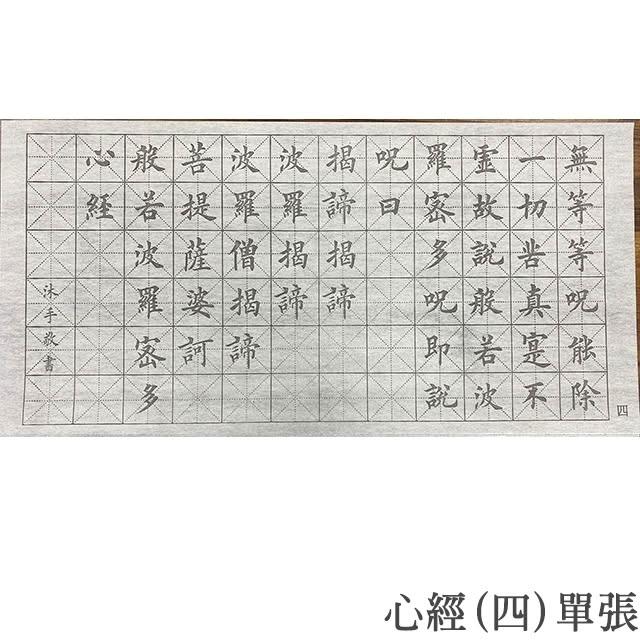 無等等呪能除
一切苦真寔不
虛故說般若波
羅密多呪即說
呪曰
揭諦揭諦
波羅揭諦
波羅僧揭諦
菩提薩婆訶
般若波羅密多
心経
沐手敬書
四
心經(四)單張